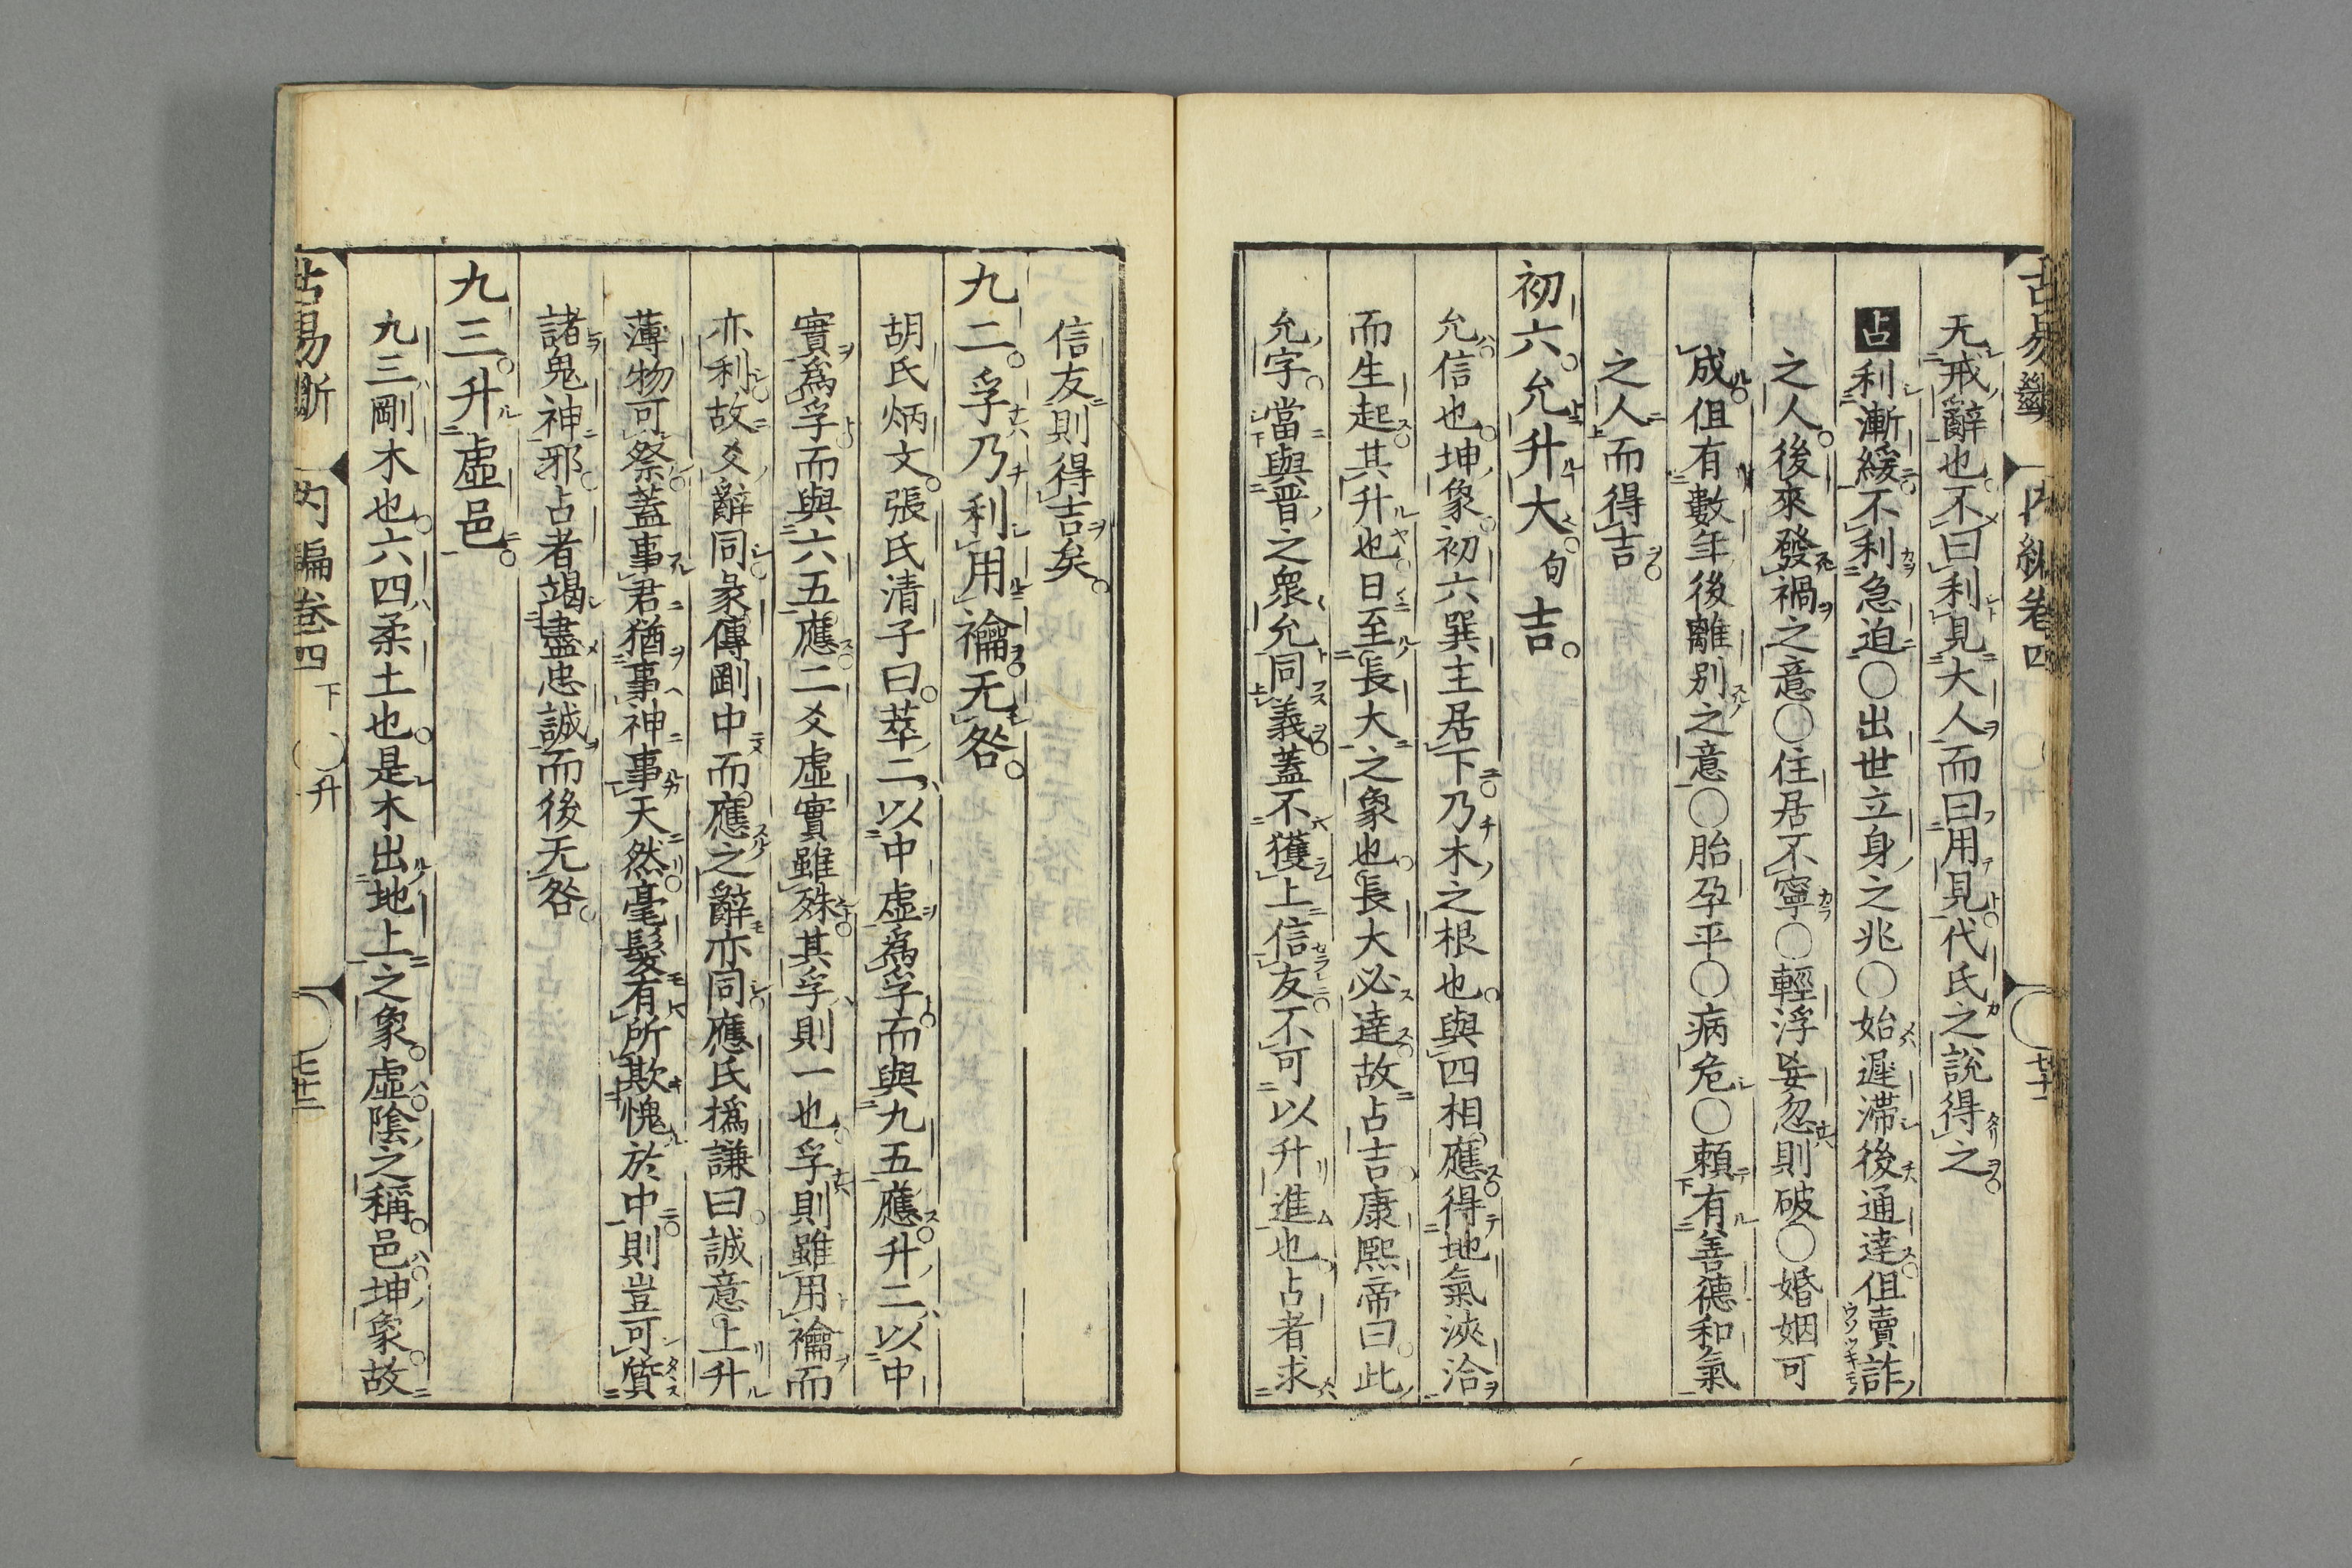 无戒辭也不曰利見大人而曰用見代氏之説得之
占利漸緩不利急迫〇出世立身之兆〇始遲滯後通達但賣詐
之人後來發禍之意〇住居不寧〇輕浮妄忽則破〇婚姻可
成但有數年後離別之意〇胎孕平〇病危〇頼有善德和氣
之人而得吉
初六允升大句吉
允信也坤象初六巽主居下乃木之根也與四相應得地氣浹洽
而生起其升也日至長大之象也長大必達故占吉康熙帝曰此
允字當與晋之衆允同義蓋不獲上信友不可以升進也占者求
信友則得吉矣
九二孚乃利用禴无咎
胡氏炳文張氏清子曰萃二以中虛爲孚而與九五應升二以中
實爲孚而與六五應二爻虛實雖殊其孚則一也孚則雖用禴而
亦利故爻辭同彖傳剛中而應之辭亦同應氏撝謙曰誠意上升
薄物可祭蓋事君猶事神事天然毫髮有所欺愧於中則豈可質
諸鬼神邪占者竭盡忠誠而後无咎
九三升虛邑
九三剛木也六四柔土也是木出地上之象虛陰之稱邑坤象故
古易斷 内編卷四下 〇升 七十二